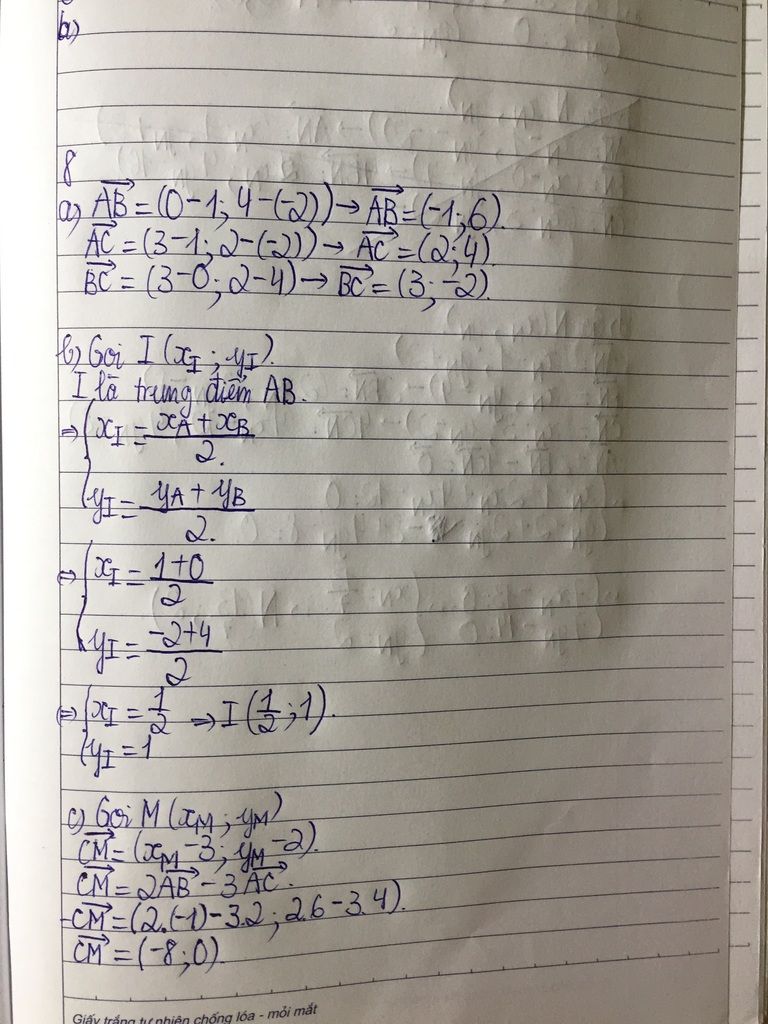 a)
8
a) AB = (0-1; 4-(-2)) → AB = (-1; 6).
AC = (3-1; 2-(-2)) → AC = (2; 4)
BC = (3-0; 2-4) → BC = (3; -2).
b) Gọi I (xI; yI).
I là trung điểm AB.
⇒ { xI = xA + xB / 2.
yI = yA + yB / 2.
⇔ { xI = 1+0 / 2
yI = -2+4 / 2
⇔ { xI = 1/2 ⇒ I (1/2; 1).
yI = 1
c) Gọi M (xM; yM)
CM = (xM - 3; yM - 2).
CM = 2AB - 3AC.
CM = (2.(-1) - 3.2; 2.6 - 3.4).
CM = (-8; 0).
Giấy trắng tự nhiên chống lóa - mỏi mắt